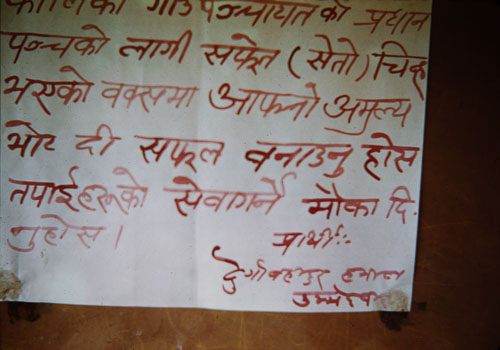 कालिका गाउँ पञ्चायतको प्रधान
पञ्चको लागी सफेत (सेतो) चिन्ह
भएको वक्समा आफ्नो अमुल्य
भोट दी सफल वनाउनु होस
तपाईहरुको सेवागर्ने मौका दि-
नुहोस।
प्रार्थी:-
हमाल
उम्मेदवार